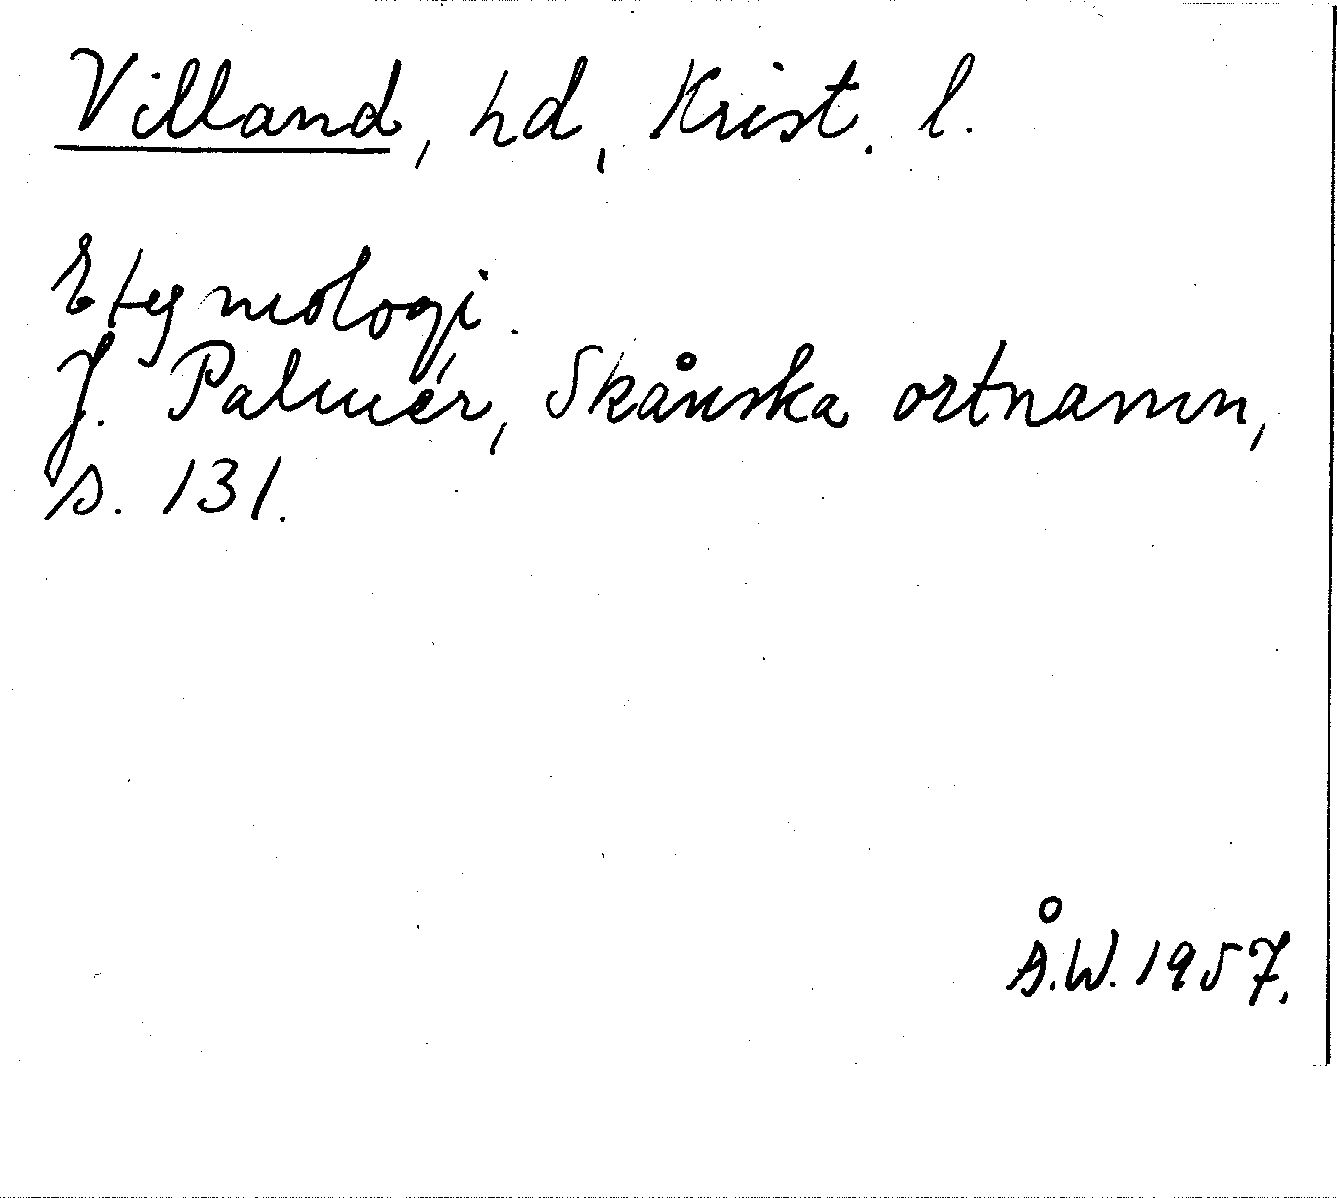 Villand, hd, Krist. l.
Etymologi.
J. Palmér, Skånska ortnamn,
s. 131.
Å.W. 1957.